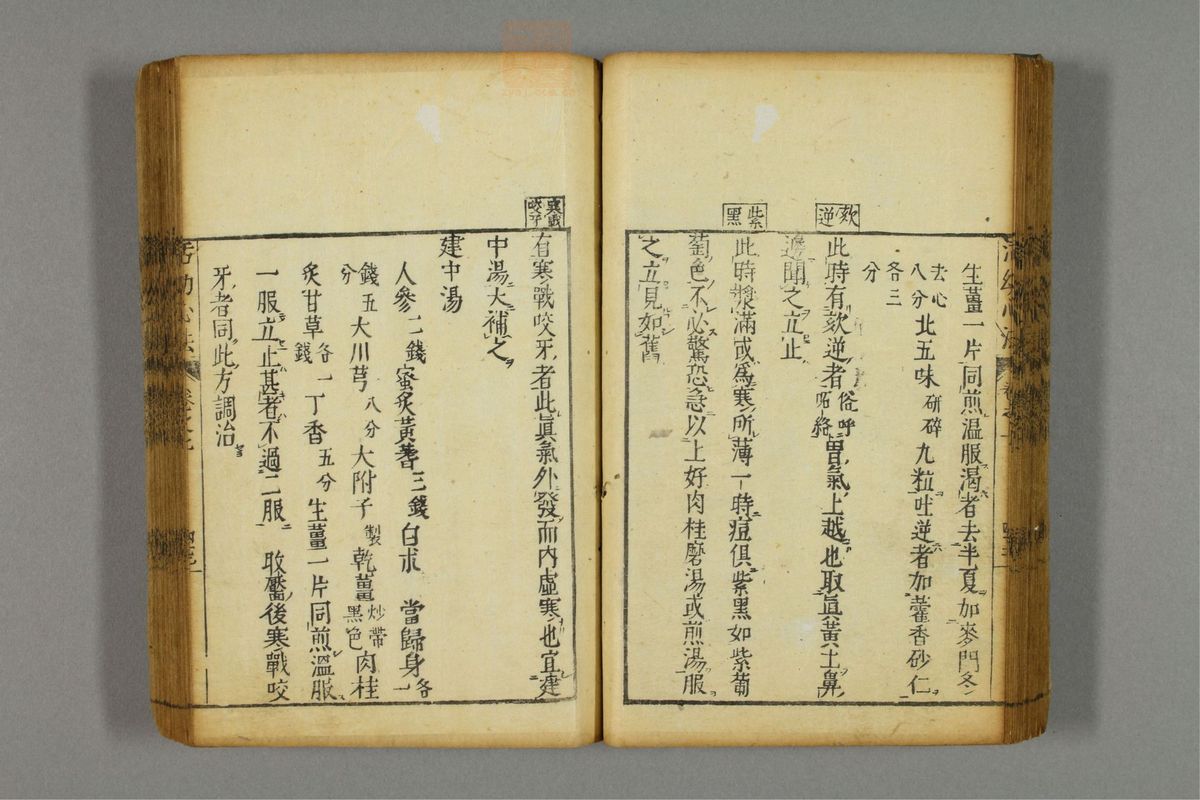 生薑一片同煎温服渴者去半夏加麥門冬
去心八分北五味研碎九粒吐逆者加藿香砂仁
各三分
欬逆
此時有欬逆者俗呼胃氣上越也取眞黃土鼻
邊聞之立止
紫黑
此時漿滿或爲寒所薄一時痘俱紫黑如紫葡
萄色不必驚恐急以上好肉桂磨湯或煎湯服
之立見如舊
寒戰咬牙
有寒戰咬牙者此眞氣外發而內虛寒也宜建
中湯大補之
建中湯
人參二錢蜜炙黃蓍三錢白朮 當歸身各一
錢五分大川芎八分大附子製乾薑炒帶黑色肉桂
炙甘草各一錢丁香五分生薑一片同煎溫服
一服立止甚者不過二服 收靨後寒戰咬
牙者同此方調治
活幼心法